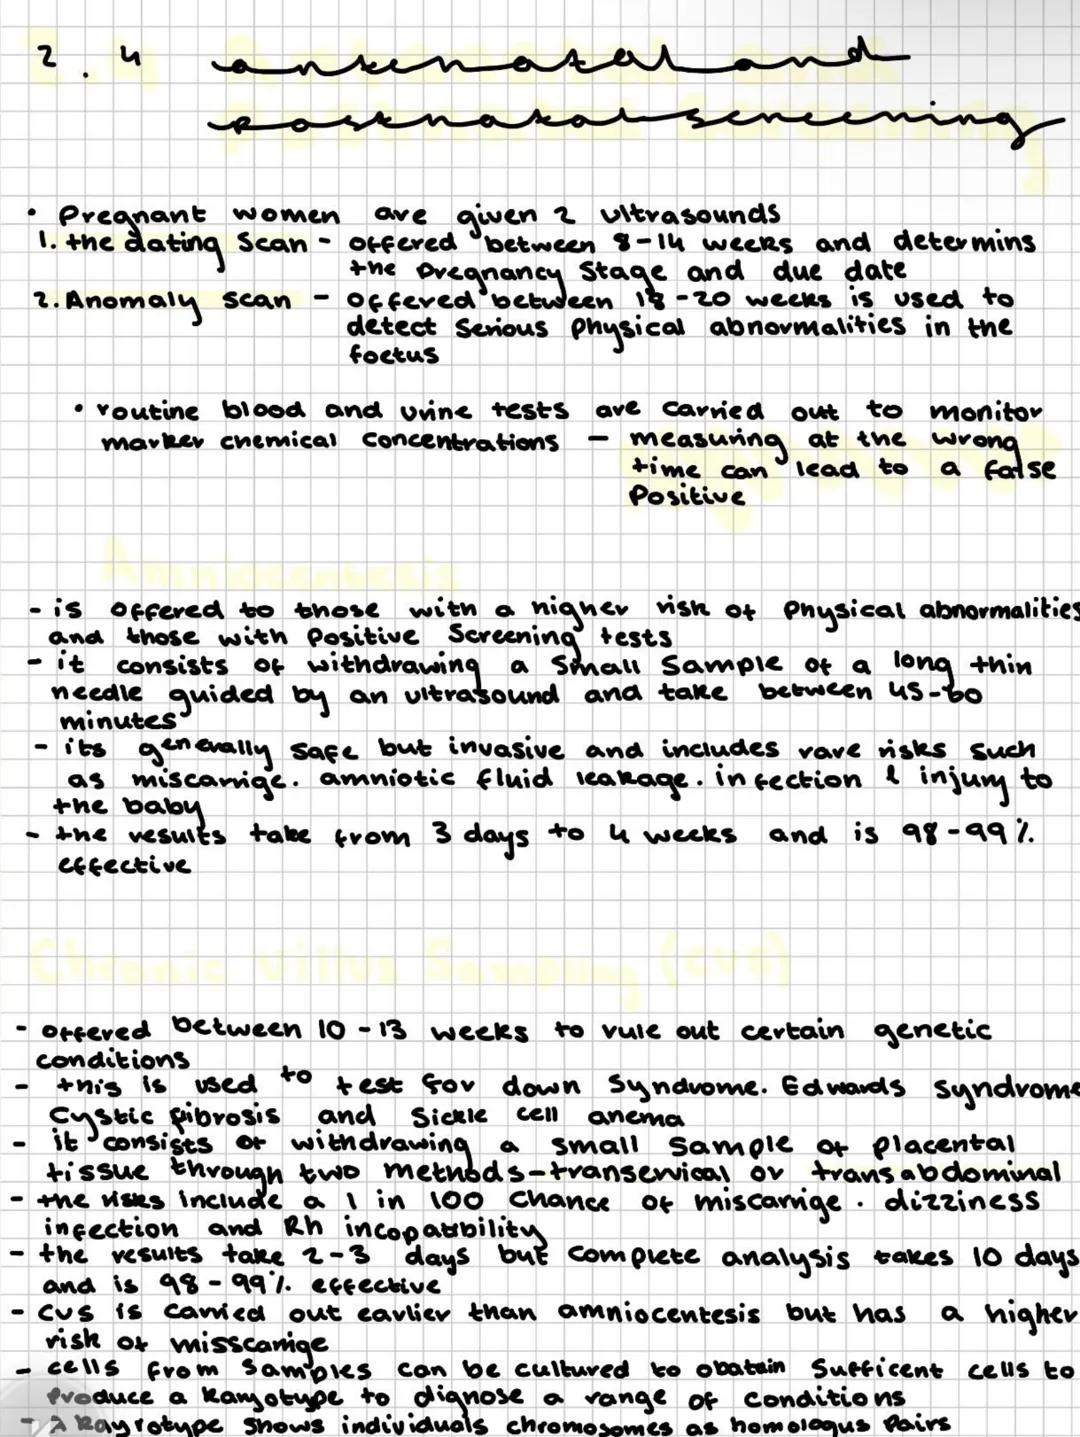 2.4 antenatal and
postnatal screening
• Pregnant women are given 2 ultrasounds
1. the dating scan - offered between 8-14 weeks and determins
the pregnancy stage and due date
2. Anomaly scan - offered between 18-20 weeks is used to
detect serious physical abnormalities in the
foetus
• routine blood and urine tests are carried out to monitor
marker chemical concentrations - measuring at the wrong
time can lead to a false
positive
Amniocentesis
- is offered to those with a higher risk of physical abnormalities
and those with positive screening tests
- it consists of withdrawing a small sample of a long thin
needle guided by an ultrasound and take between 45-60
minutes
- its generally safe but invasive and includes rare risks such
as miscarrige. amniotic fluid leakage. infection & injury to
the baby
- the results take from 3 days to 4 weeks and is 98-99%
effective
Chronic Villus Sampling (CVS)
- offered between 10-13 weeks to rule out certain genetic
conditions
- this is used to test for down syndrome. Edwards syndrome
Cystic fibrosis and Sickle cell anema
- it consists of withdrawing a small sample of placental
tissue through two methods-transervical or transabdominal
- the risks include a 1 in 100 chance of miscarrige. dizziness
infection and Rh incopatibility
- the results take 2-3 days but complete analysis takes 10 days
and is 98-99% effective
- CVS is carried out earlier than amniocentesis but has a higher
risk of misscarrige
- cells from samples can be cultured to obatain sufficent cells to
produce a karyotype to dignose a range of conditions
- A Kayrotype shows individuals chromosomes as homologus pairs